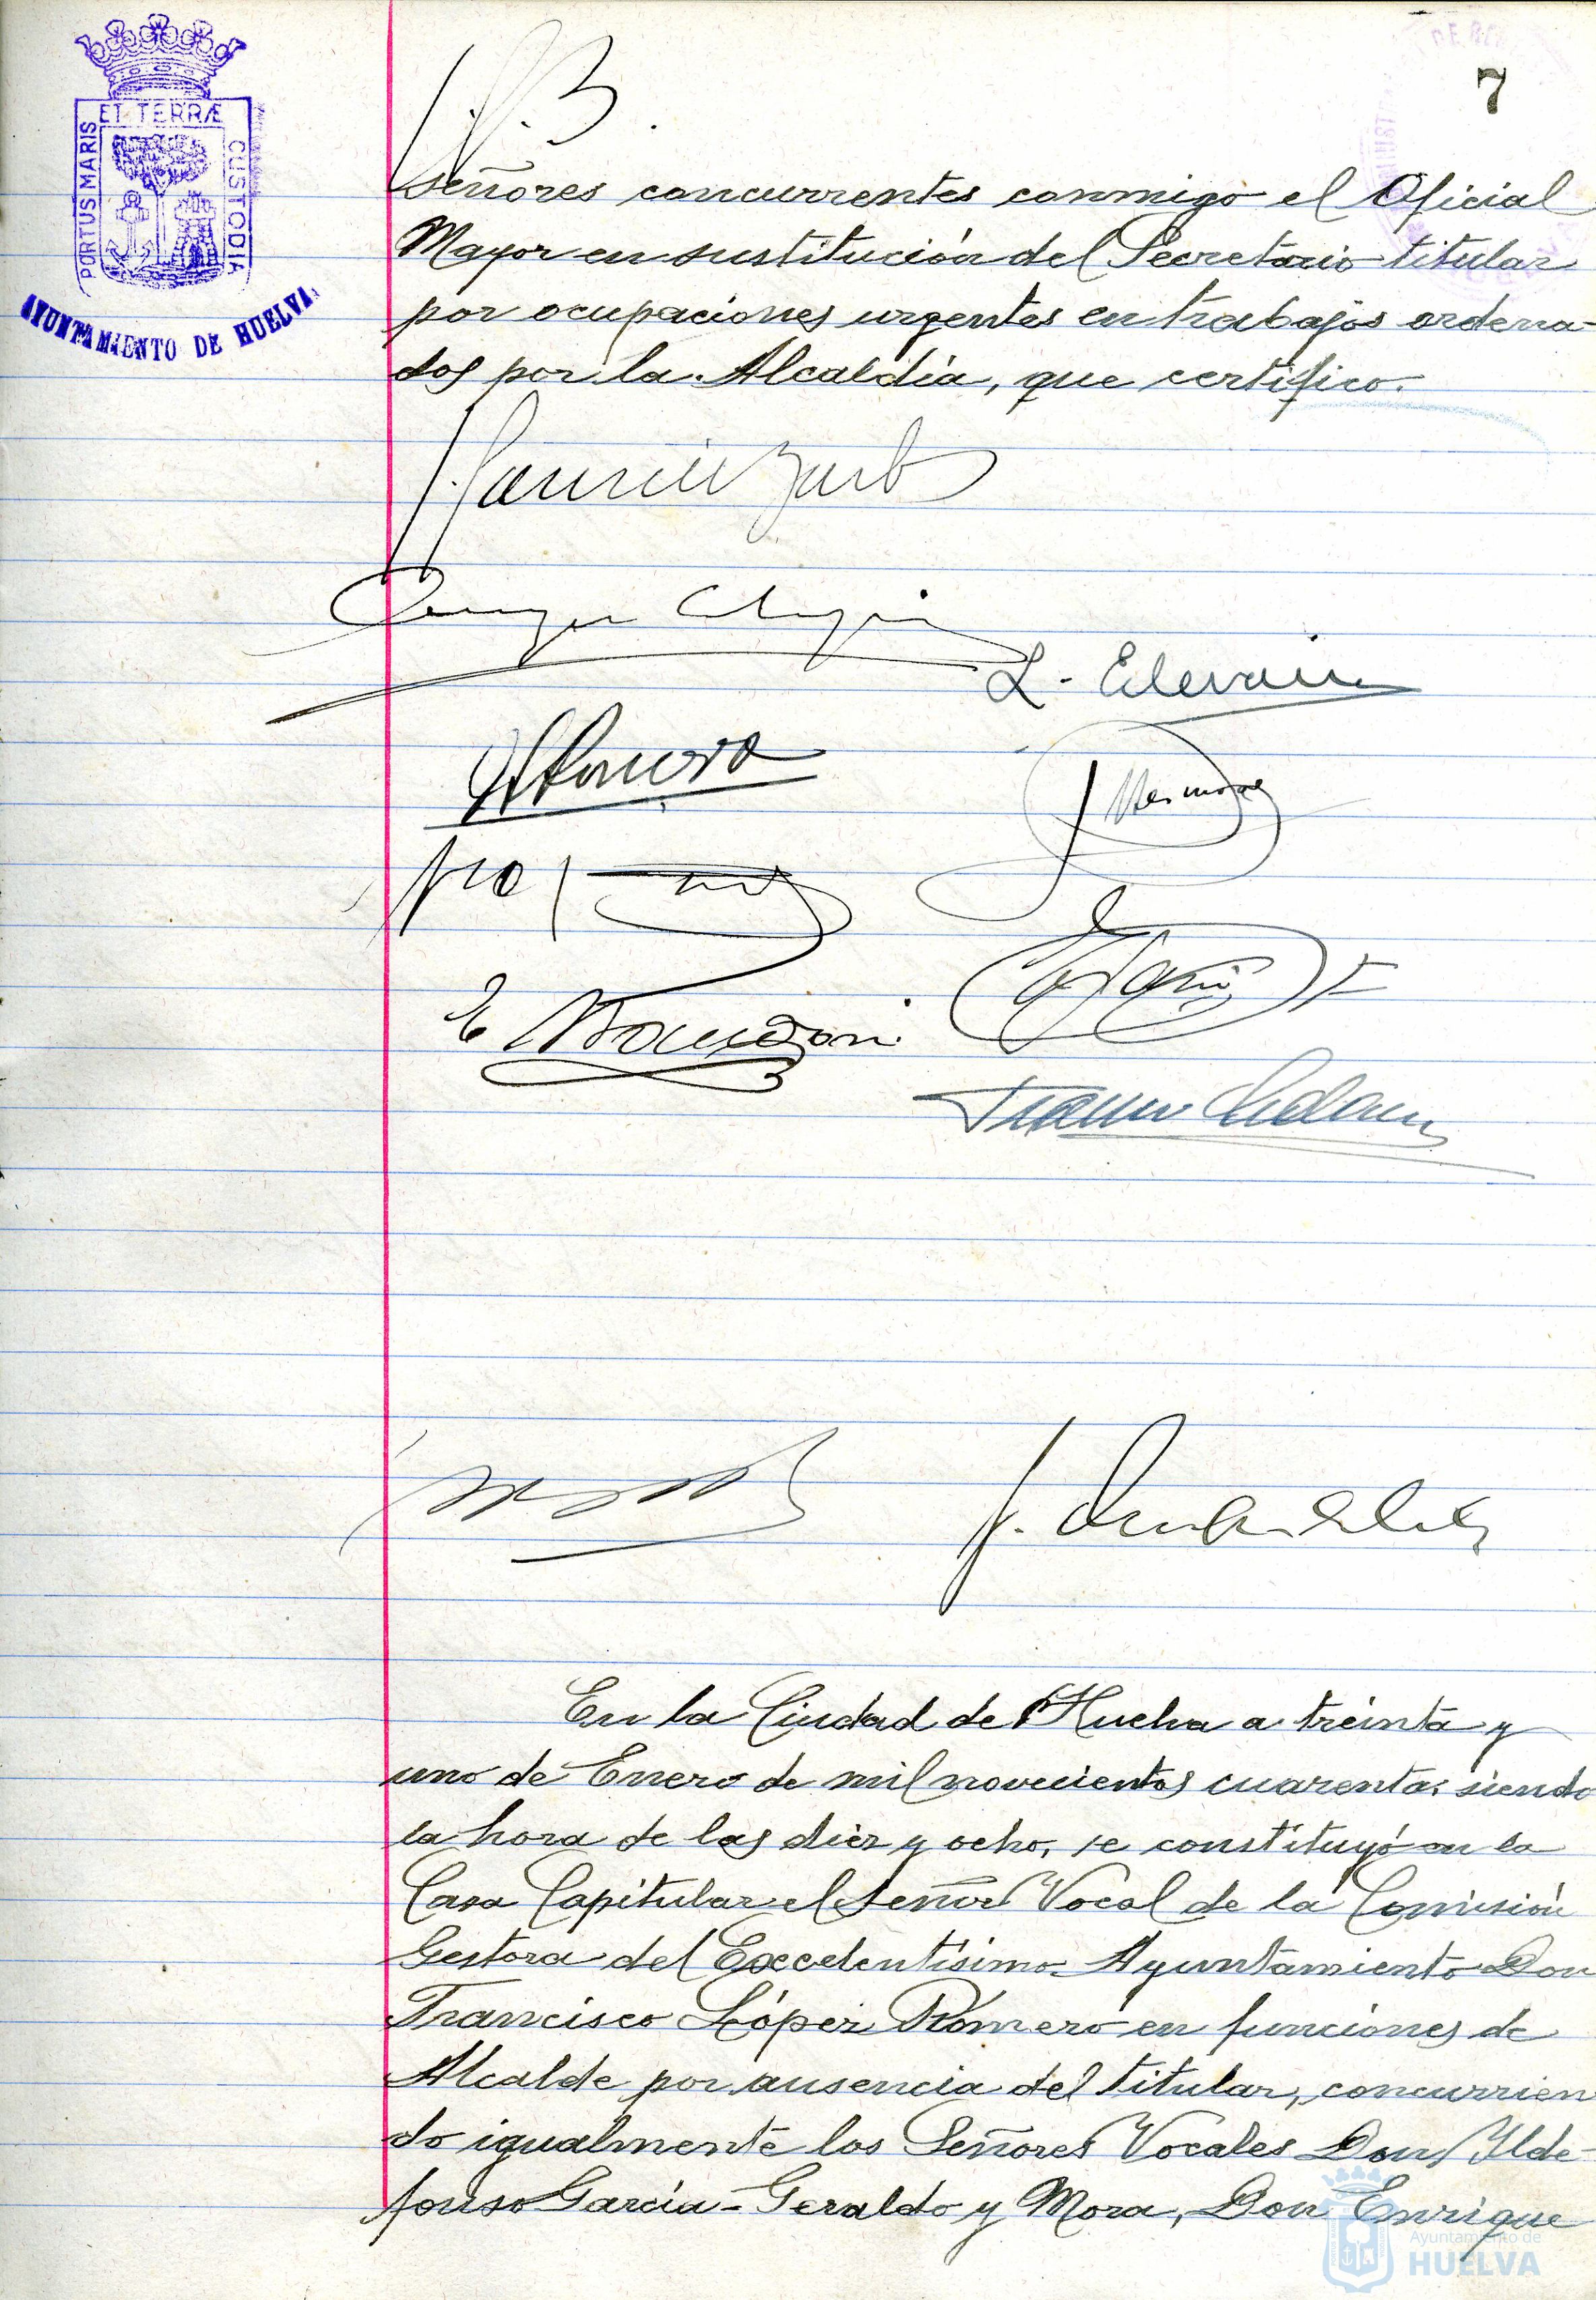 7
PORTUS MARIS ET TERRÆ CUSTODIA
AYUNTAMIENTO DE HUELVA
señores concurrentes conmigo el Oficial
Mayor en sustitución del Secretario titular
por ocupaciones urgentes en trabajos ordena-
dos por la Alcaldía, que certifico.
En la Ciudad de Huelva a treinta y
uno de Enero de mil novecientos cuarenta: siendo
la hora de las diez y ocho, se constituyó en la
Casa Capitular el Señor Vocal de la Comisión
Gestora del Excelentísimo Ayuntamiento Don
Francisco López Romero en funciones de
Alcalde por ausencia del titular, concurrien
do igualmente los Señores Vocales Don Ilde-
fonso García-Geraldo y Mora, Don Enrique
Ayuntamiento de
HUELVA